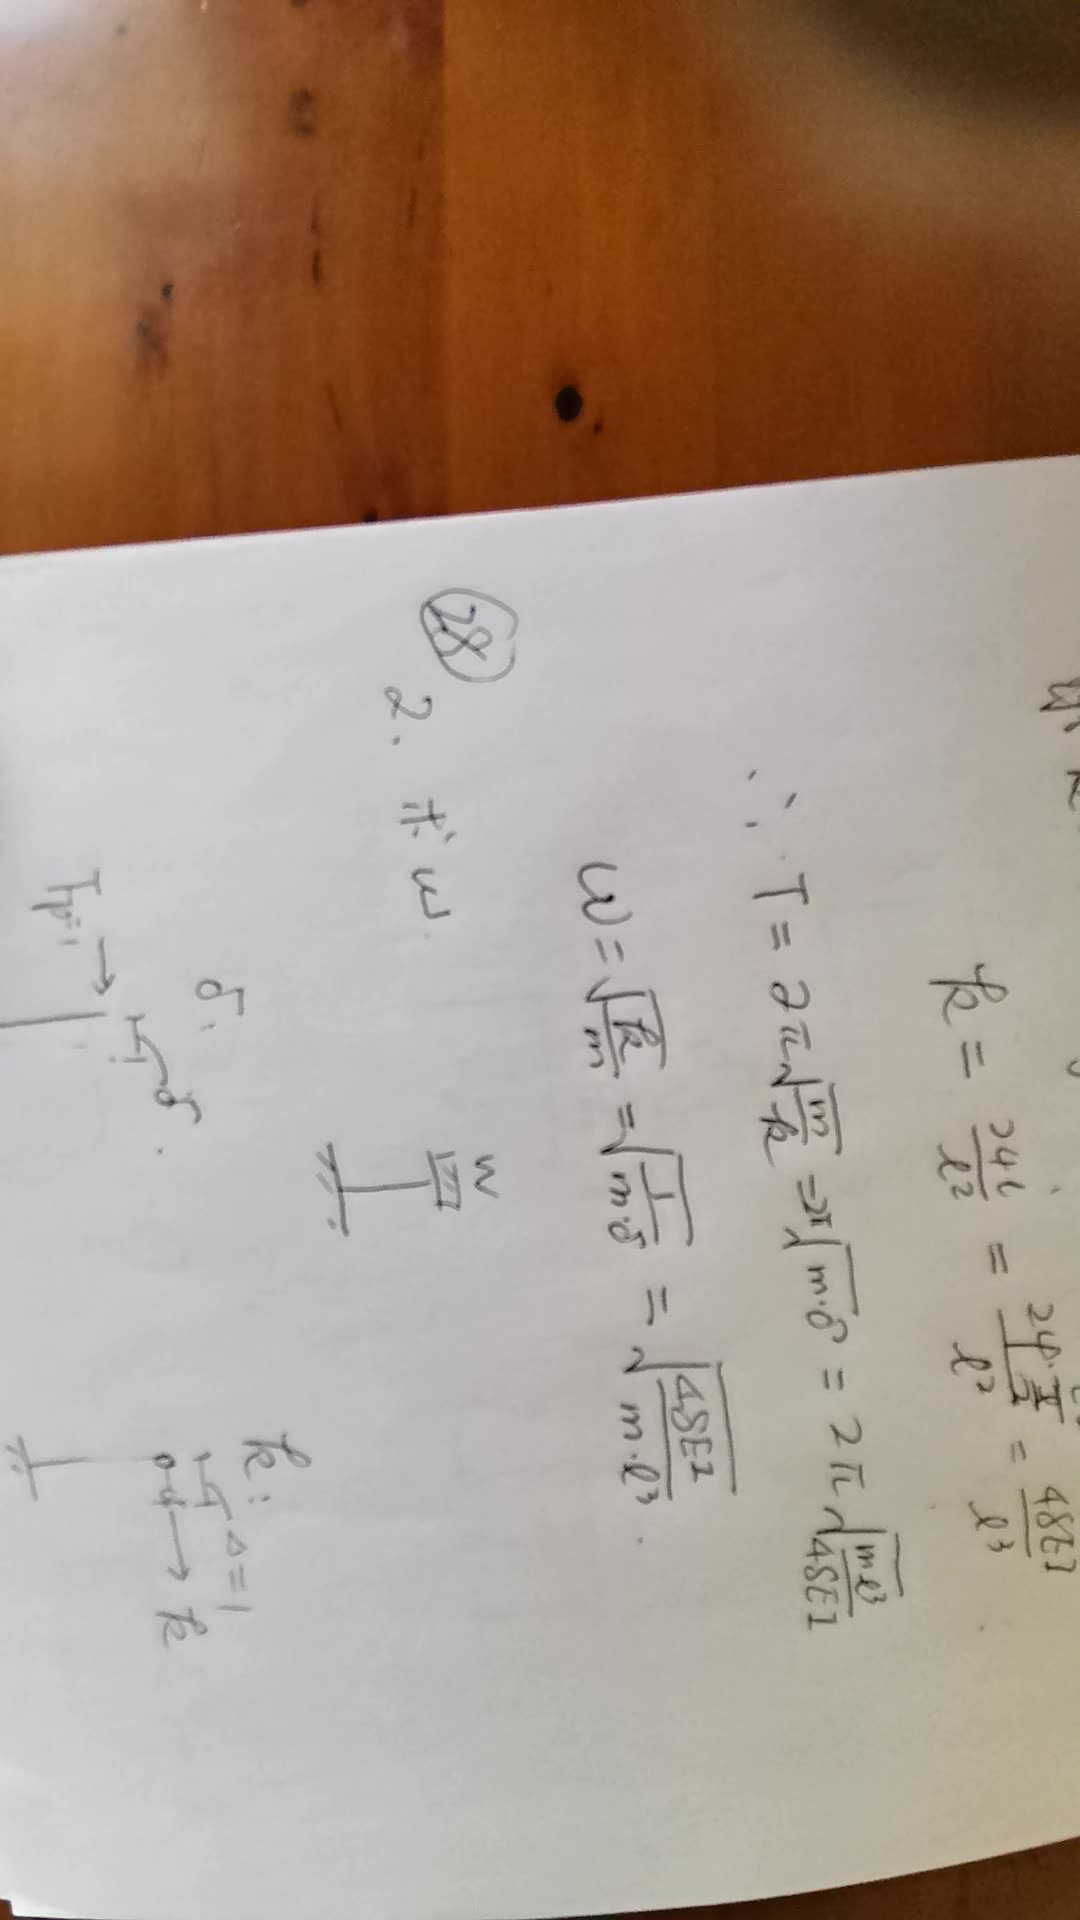 k = 24i/l² = 24·EI/l/l² = 48EI/l³
∴ T = 2π√(m/k) = 2π√(m·δ) = 2π√(ml³/48EI)
ω = √(k/m) = √(1/m·δ) = √(48EI/m·l³).
28
2. 求 ω.
W
δ:
k:
δ
Δ=1
k